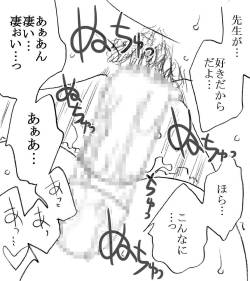 先生が…
好きだから
だよ…
ほら…
こんなに
…っ
ぬちゅっ
ぬちゅっ
ぬちゅっ
ぬちゅっ
あぁあん
凄い…
凄ぉい…っ
あぁあ…